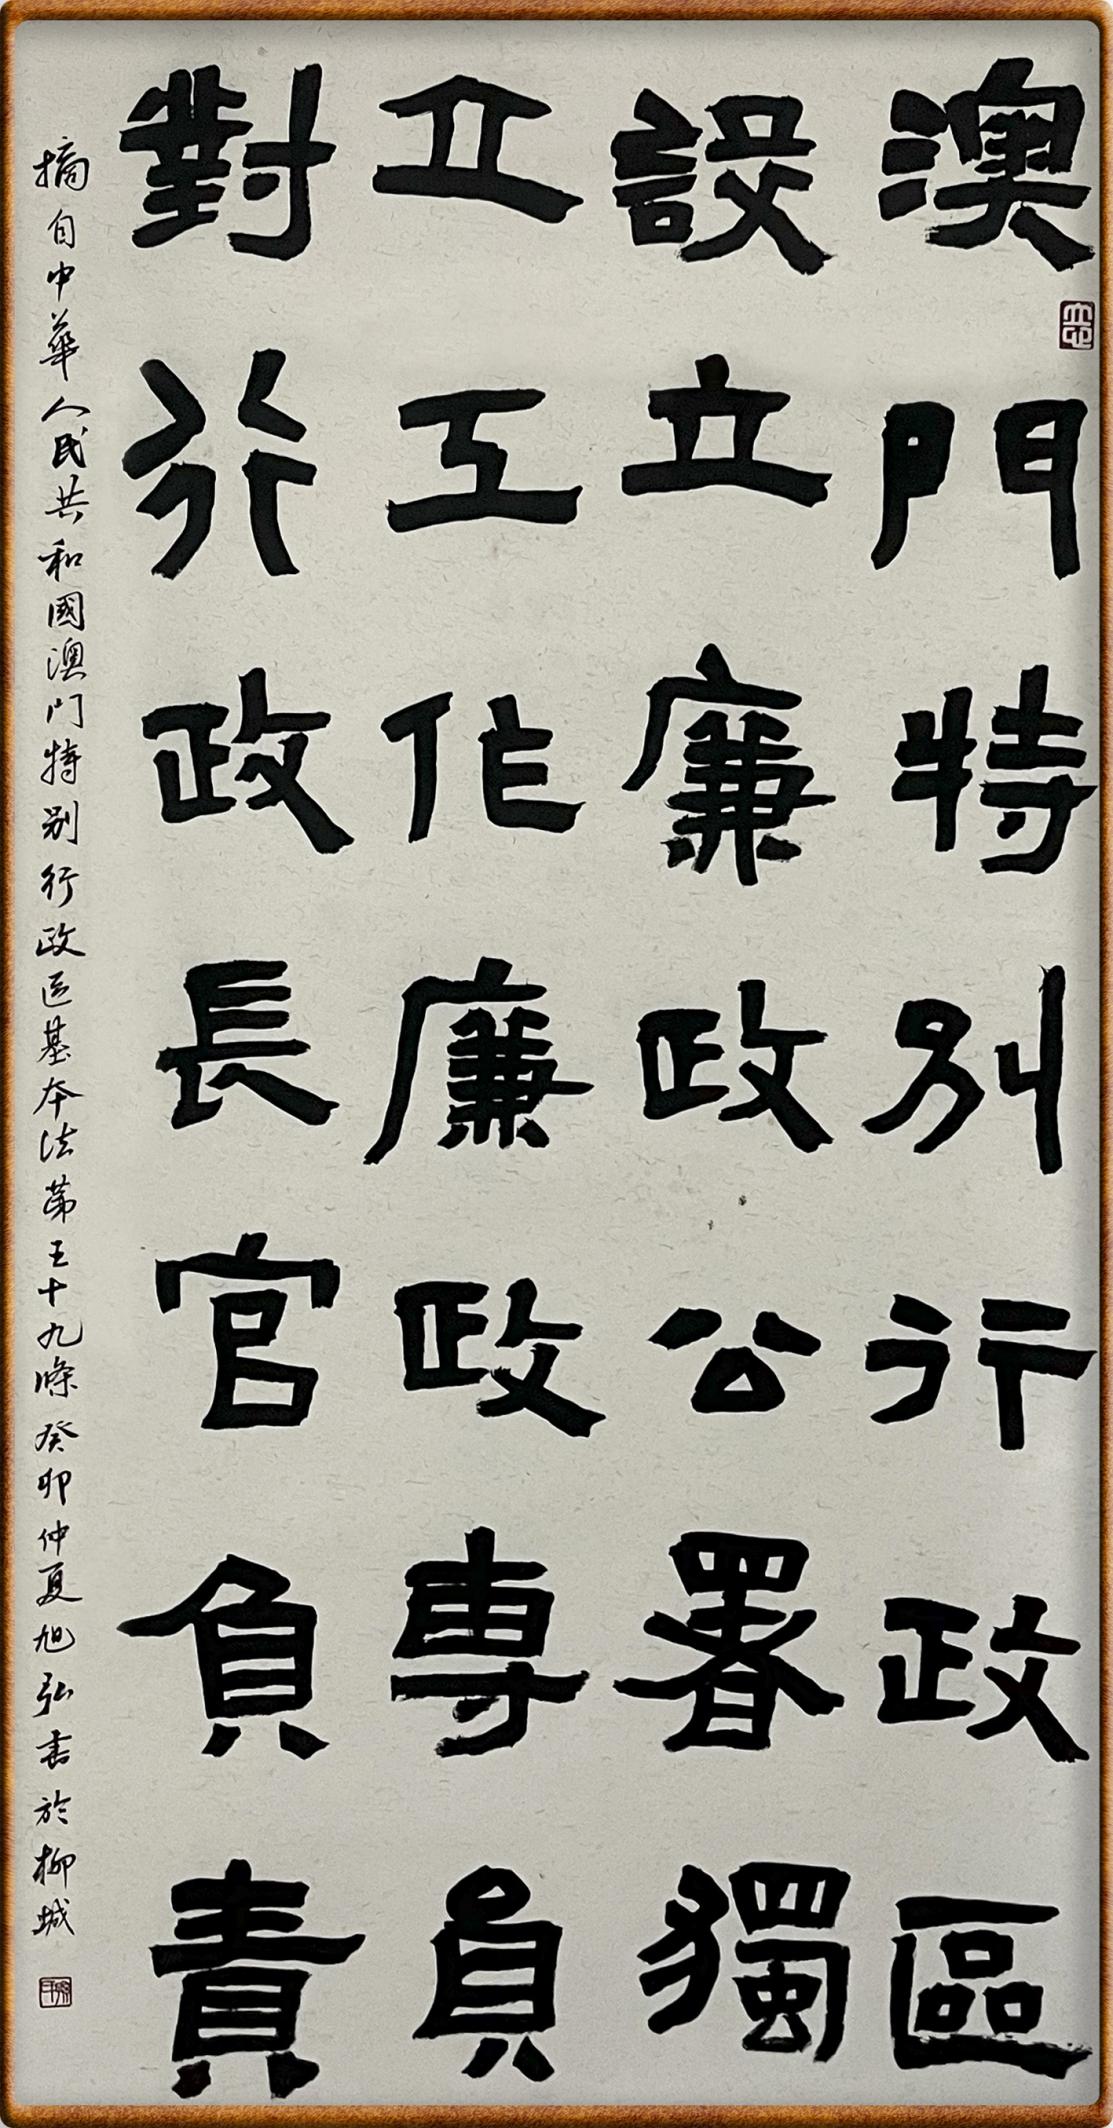 澳門特別行政區
設立廉政公署獨
立工作廉政專員
對行政長官負責
摘自中華人民共和國澳门特别行政区基本法第五十九條癸卯仲夏旭弘书於柳城